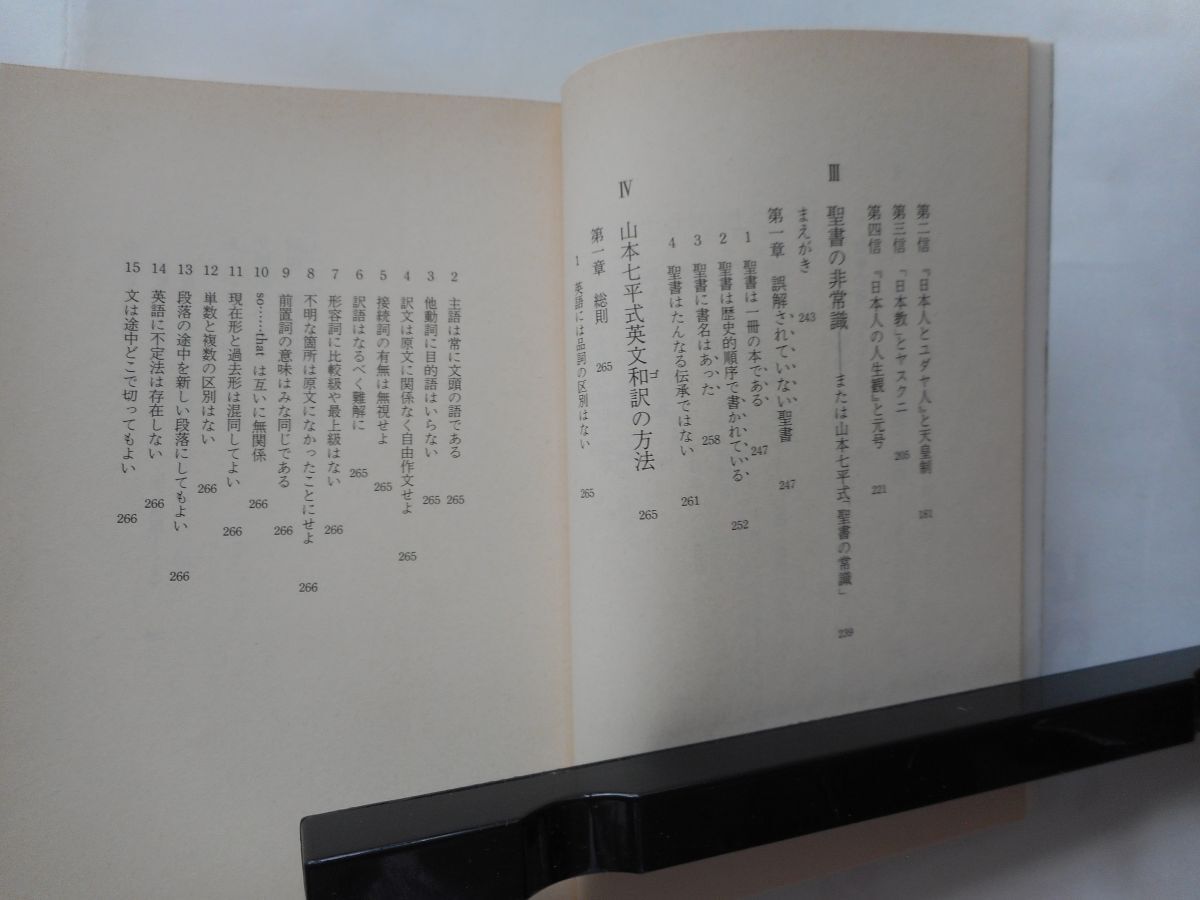 第二信 『日本人とユダヤ人』と天皇制 181
第三信 「日本教」とヤスクニ 205
第四信 『日本人の人生観』と元号 221
Ⅲ 聖書の非常識——または山本七平式「聖書の常識」 239
まえがき 243
第一章 誤解されていない聖書 247
1 聖書は一冊の本である 247
2 聖書は歴史的順序で書かれている 252
3 聖書に書名はあった 258
4 聖書はたんなる伝承ではない 261
Ⅳ 山本七平式英文和訳の方法 265
ゴ
第一章 総則 265
1 英語には品詞の区別はない 265
2 主語は常に文頭の語である 265
3 他動詞に目的語はいらない 265
4 訳文は原文に関係なく自由作文せよ 265
5 接続詞の有無は無視せよ 265
6 訳語はなるべく難解に 265
7 形容詞に比較級や最上級はない 266
8 不明な箇所は原文になかったことにせよ 266
9 前置詞の意味はみな同じである 266
10 so……that は互いに無関係 266
11 現在形と過去形は混同してよい 266
12 単数と複数の区別はない 266
13 段落の途中を新しい段落にしてもよい 266
14 英語に不定法は存在しない 266
15 文は途中どこで切ってもよい 266